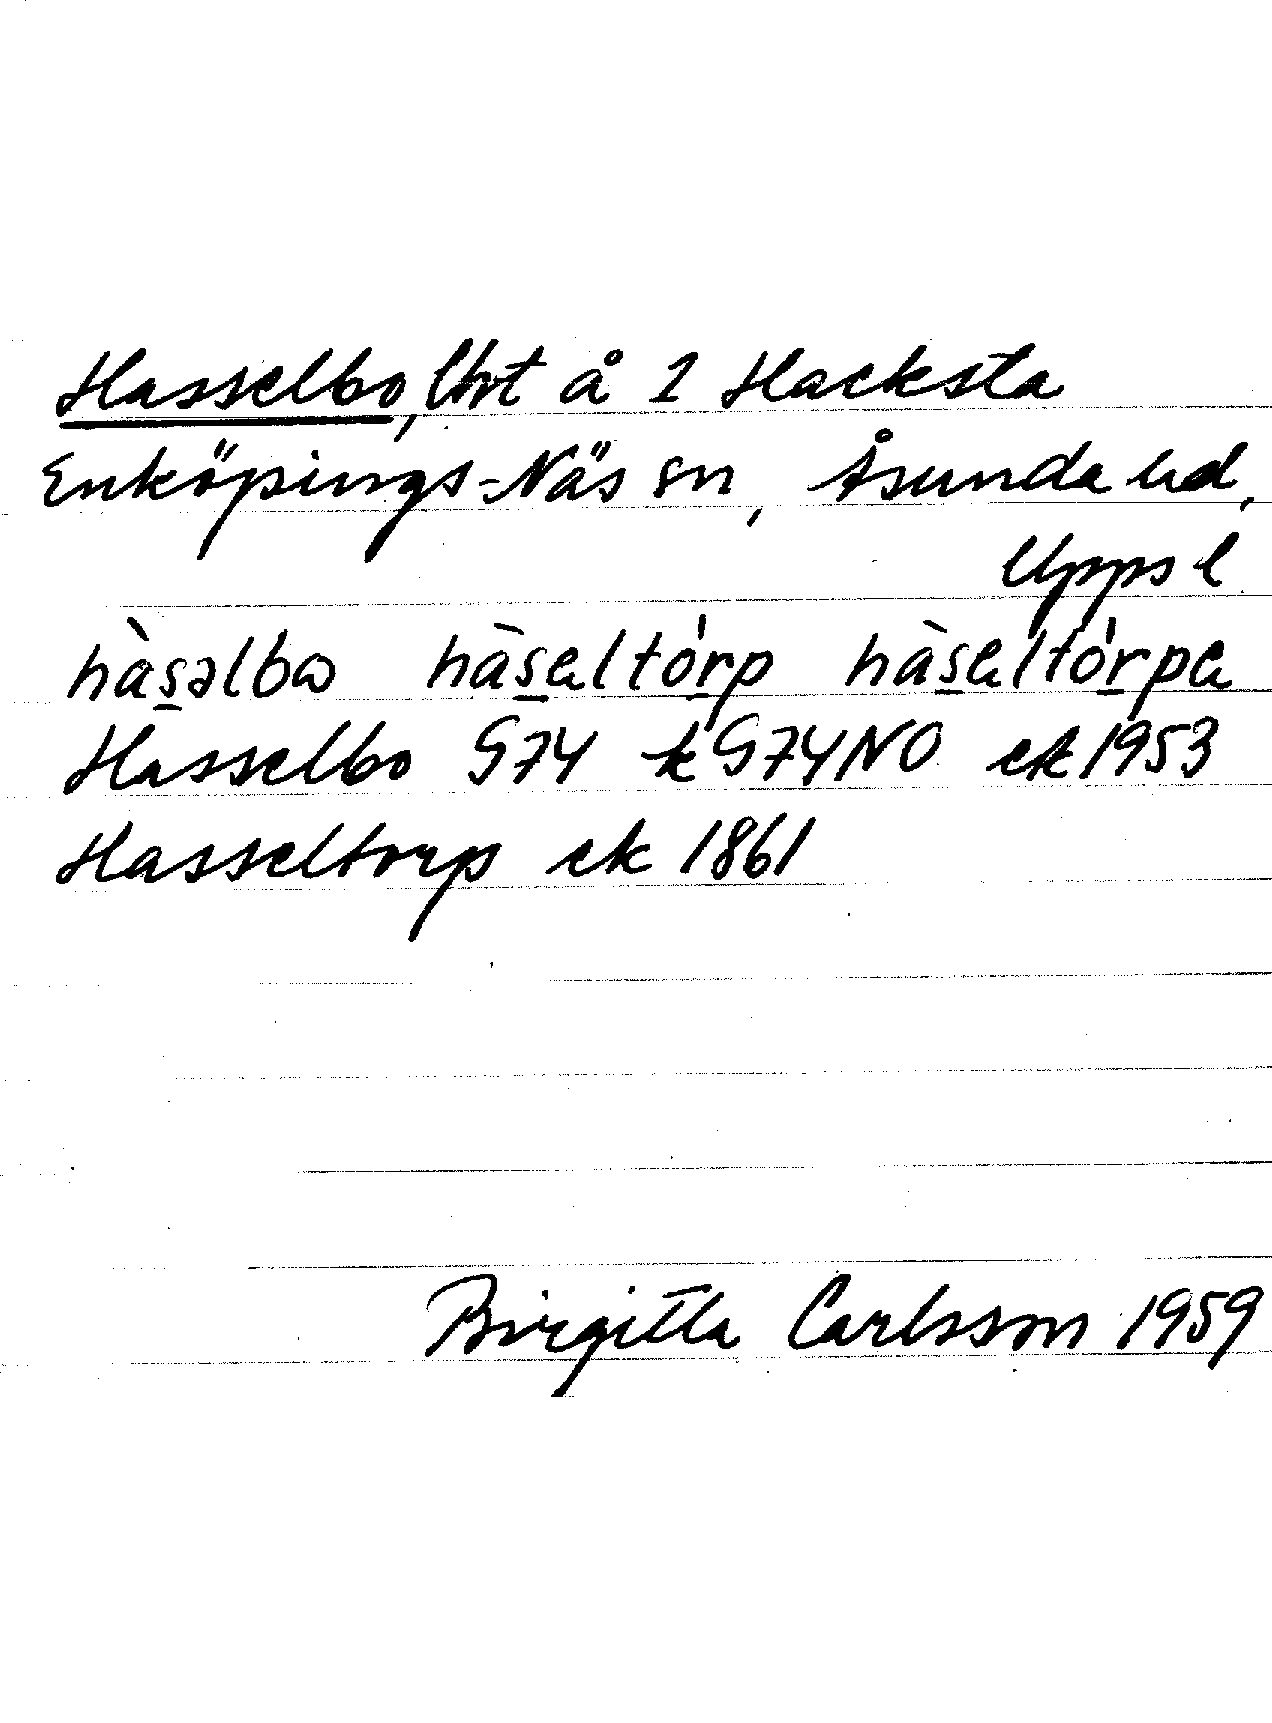 Hasselbo, lht å 1 Hacksta
Enköpings-Näs sn, Åsunda hd,
Upps l
hàs̲əlbω hàs̲altór̲p hàs̲altór̲pa
Hasselbo G74 k G74NO ek 1953
Hasseltorp ek 1861
Birgitta Carlsson 1959